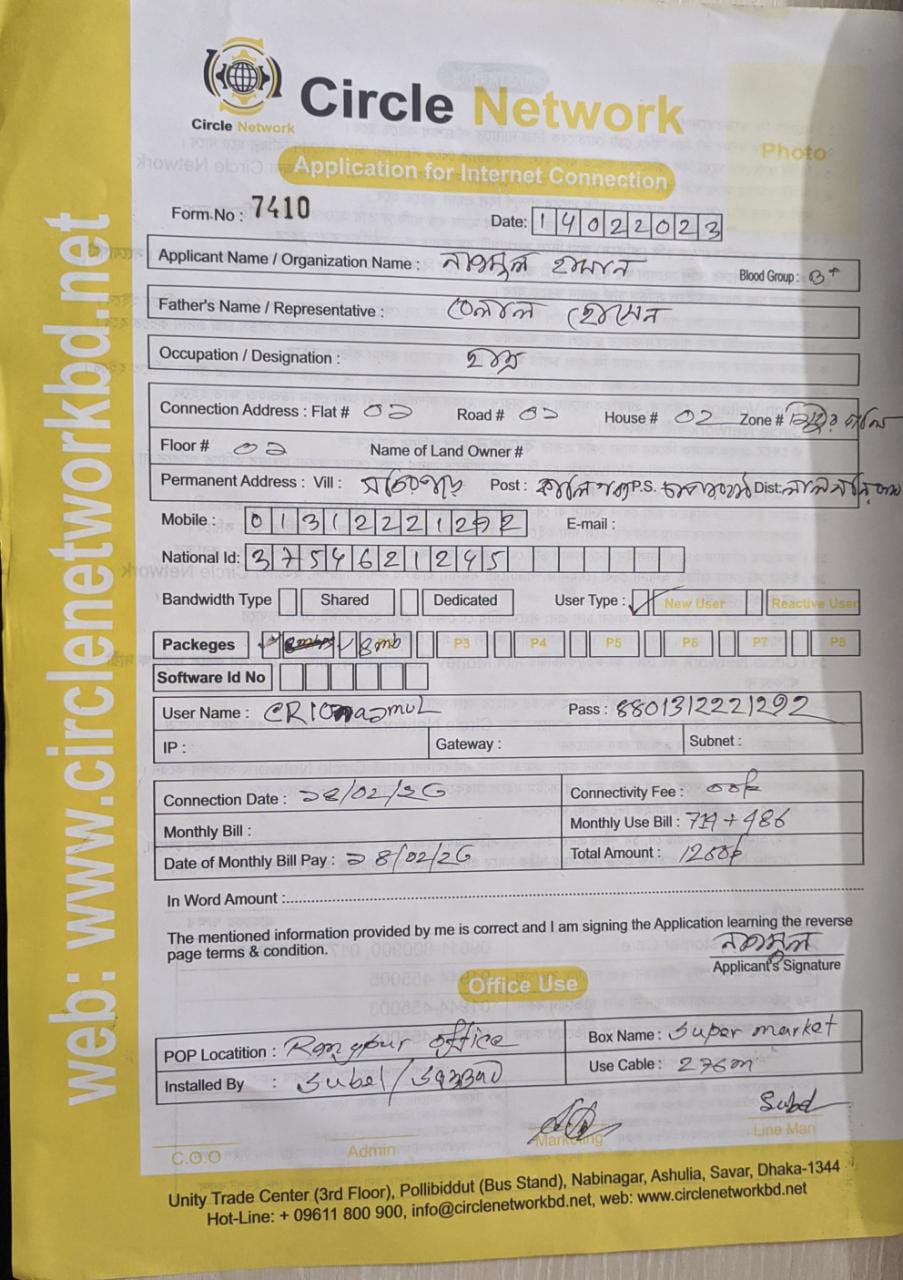 Circle Network
Circle Network
Photo
Application for Internet Connection
Form.No : 7410
Date: 14022023
Applicant Name / Organization Name : নাজমুল হাসান
Blood Group : B+
Father's Name / Representative : বেলাল হোসেন
Occupation / Designation : ছাত্র
Connection Address : Flat # 02 Road # 02 House # 02 Zone #
Floor # 02 Name of Land Owner #
Permanent Address : Vill : Post : P.S. Dist:
Mobile : 01312221292 E-mail :
National Id: 3754621245
Bandwidth Type Shared Dedicated User Type : New User Reactive User
Packeges 8 mb P3 P4 P5 P6 P7 P8
Software Id No
User Name : Pass : 8801312221292
IP : Gateway : Subnet :
Connection Date : 28/02/26 Connectivity Fee :
Monthly Bill : Monthly Use Bill : 714 + 486
Date of Monthly Bill Pay : 28/02/26 Total Amount : 1200/-
In Word Amount :
The mentioned information provided by me is correct and I am signing the Application learning the reverse
page terms & condition.
নাজমুল
Applicant's Signature
Office Use
POP Locatition : Rangpur office Box Name : Super market
Installed By : Subel/ Use Cable : 276m
Subel
C.O.O Admin Marketing Line Man
Unity Trade Center (3rd Floor), Pollibiddut (Bus Stand), Nabinagar, Ashulia, Savar, Dhaka-1344
Hot-Line: + 09611 800 900, info@circlenetworkbd.net, web: www.circlenetworkbd.net
web: www.circlenetworkbd.net